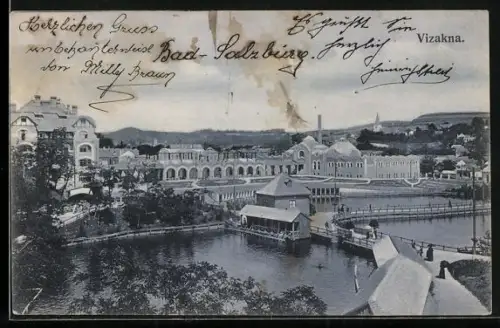 Herzlichen Gruss
unbekannterweise Bad-Salzburg
von Milly Braun
Es grüßt Sie
herzlich
Vizakna.